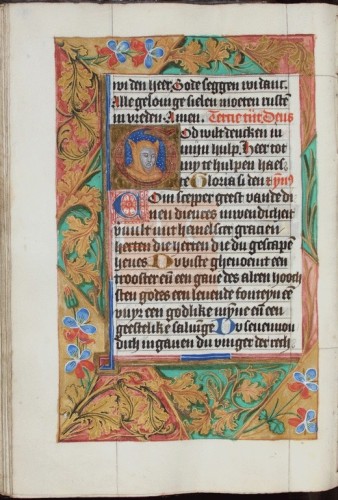 wi den heer Gode seggen wi danc
Alle gelouige sielen moeten rustē
in vreden Amen Tercie tijt Deus
God wilt dencken in
mijn hulp Heer tot
my te hulpen haes
te Gloria si den
Com scepper geest van de di
nen dienres inwendicheit
vuult mit hemelscer gracien
herten die herten die du gescape
heues Du biste ghenoemt een
trooster eñ een gaue des alren hooch
sten godes een leuende fonteyn eñ
vuyr een godlike mȳne eñ een
geestelike saluinge Du seuenuou
dich in gauen du vinger der rech